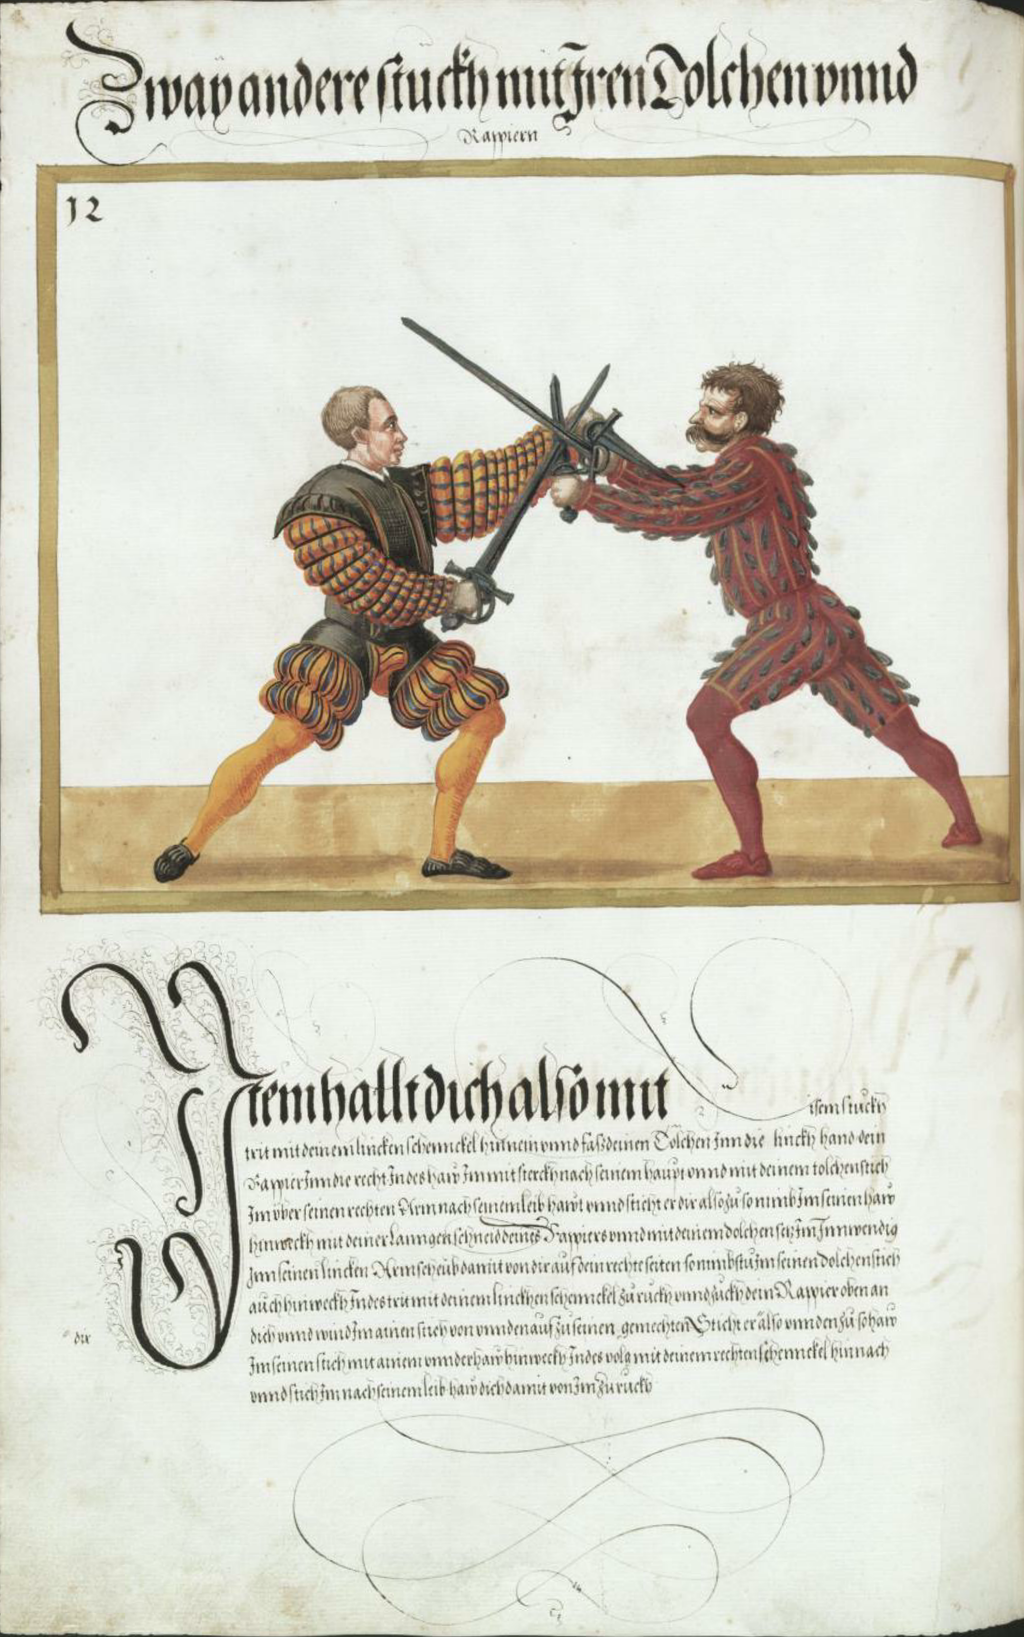 Zway andere stuckh mit Iren Tolchen vnnd
Rappiern
12
Item hallt dich also mit
disem stuckh
trit mit deinem lincken schennckel hinnein vnnd fass deinen Tolchen Inn die linckh hand dein
Rappier Inn die recht Indes haw Im mit sterckh nach seinem haupt vnnd mit deinem tolchen stich
Im vber seinen rechten Arm nach seinem leib hawt vnnd sticht er dir also zu so nimb Im seinen haw
hinweckh mit deiner lanngen schneid deines Rappiers vnnd mit deinem dolchen setz Im Innwendig
Inn seinen lincken Arm scheub damit von dir auf dein rechte seiten so nimbstu Im seinen dolchen stich
auch hinweckh Indes trit mit deinem linckhen schennckel zu ruckh vnnd zuckh dein Rappier oben an
dich vnnd wind Im ainen stich von vnnden auf zu seinen gemechten Sticht er also vnnden zu so haw
dir
Im seinen stich mit ainem vnnderhaw hinweckh Indes volg mit deinem rechten schennckel hinnach
vnnd stich Im nach seinem leib haw dich damit von Im zu ruckh